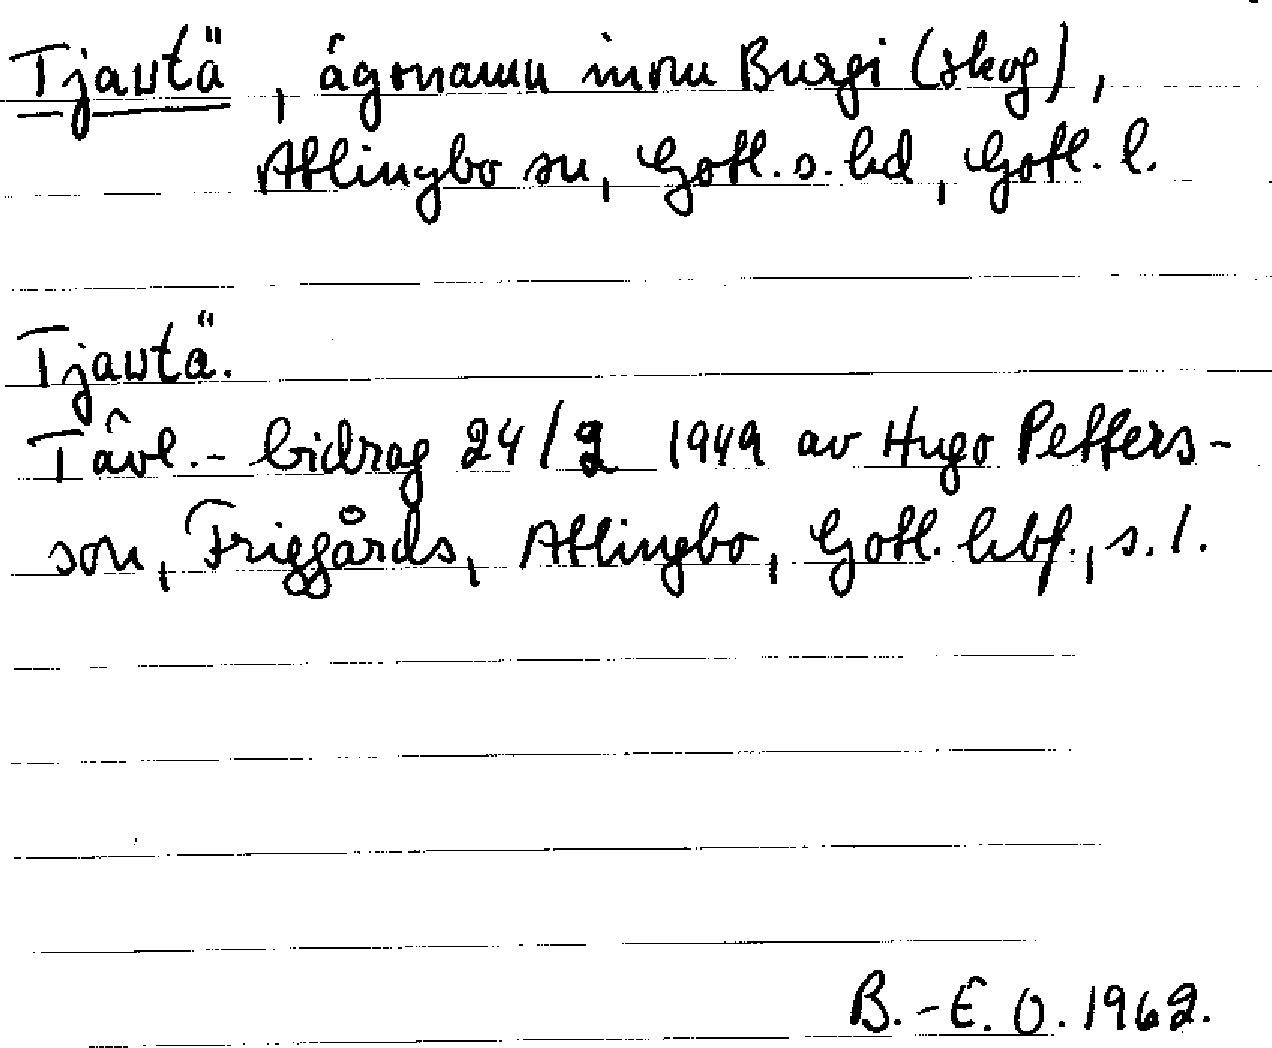 Tjautä, ägonamn inom Burgi (skog),
Atlingbo sn, Gotl. s. hd, Gotl. l.
Tjautä.
Tävl.-bidrag 24/2 1949 av Hugo Petters-
son, Friggårds, Atlingbo, Gotl. hbf., s. 1.
B.-E. O. 1962.